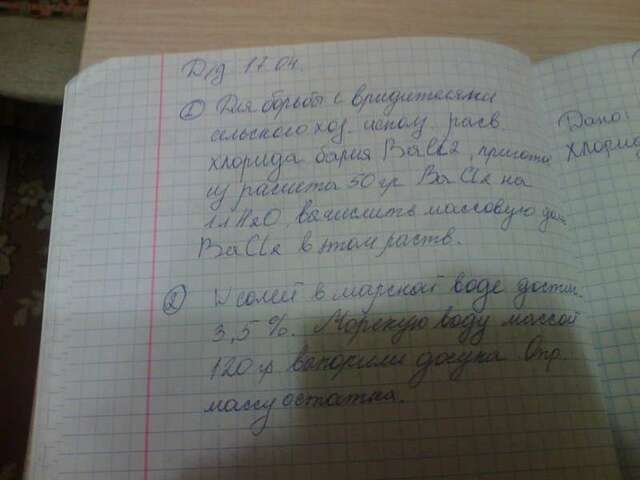 Д/з 17.04.
① Для борьбы с вридителями
сельского хоз. использ. раств.
хлорида бария BaCl2, пригота
из расчета 50 гр BaCl2 на
1 л H2O, вычислить массовую дол
BaCl2 в этом раств.
② W солей в марской воде достиг.
3,5%. Морскую воду массой
120 гр выпорили досуха. Опр.
массу остатка.
Дано:
Хлорид